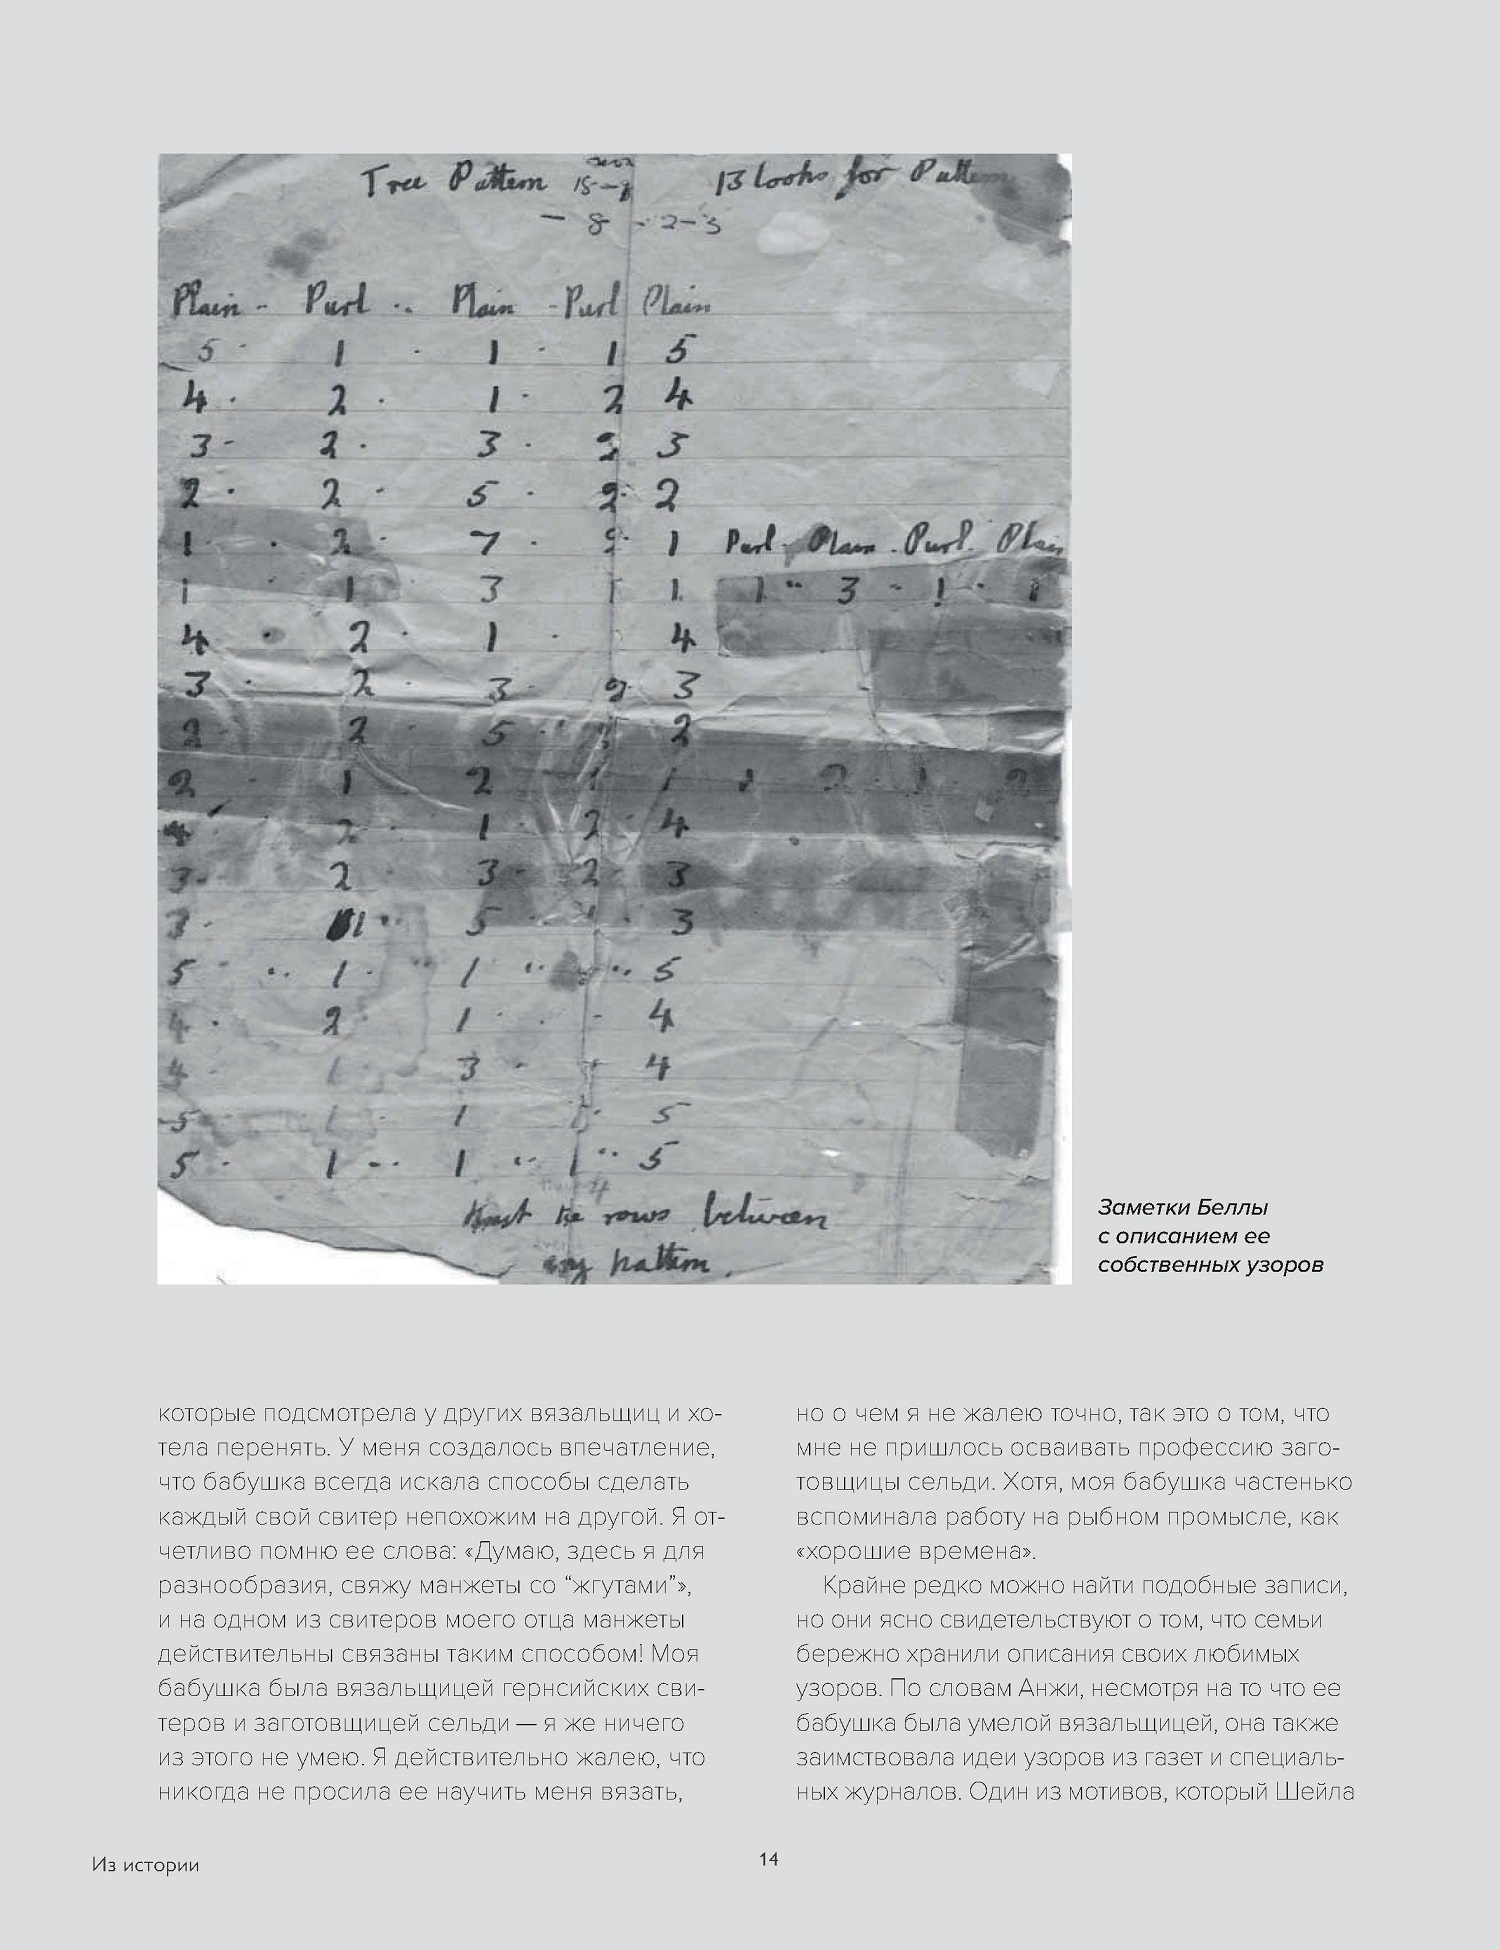 Tree Pattern 15-9 13 loohs for Pattern
- 8 - 2-3
Plain - Purl .. Plain - Purl Plain
5 - 1 - 1 - 1 5
4 . 2 . 1 . 2 4
3 - 2 . 3 . 2 3
2 . 2 - 5 . 2 . 2
1 . 2 - 7 . 2 . 1 Purl - Plain . Purl . Plain
1 . 1 3 1 1 1 .. 3 - 1 - 1
4 . 2 . 1 . 4
3 . 2 . 3 . 2 . 3
2 . 2 . 5 . 2
2 . 1 2 1 1 1 2 . 1 . 2
4 . 2 . 1 . 2 . 4
3 . 2 . 3 . 2 . 3
3 . 1 .. 5 . 1 . 3
5 .. 1 . .. 1 .. .. 5
4 . 2 1 . - 4
4 . 1 3 . 1 4
5 1 1 1 . 5
5 . 1 -.. 1 .. 1 .. 5
rows between
any pattern.
Заметки Беллы
с описанием ее
собственных узоров
которые подсмотрела у других вязальщиц и хо-
тела перенять. У меня создалось впечатление,
что бабушка всегда искала способы сделать
каждый свой свитер непохожим на другой. Я от-
четливо помню ее слова: «Думаю, здесь я для
разнообразия, свяжу манжеты со “жгутами”»,
и на одном из свитеров моего отца манжеты
действительны связаны таким способом! Моя
бабушка была вязальщицей гернсийских сви-
теров и заготовщицей сельди — я же ничего
из этого не умею. Я действительно жалею, что
никогда не просила ее научить меня вязать,
но о чем я не жалею точно, так это о том, что
мне не пришлось осваивать профессию заго-
товщицы сельди. Хотя, моя бабушка частенько
вспоминала работу на рыбном промысле, как
«хорошие времена».
Крайне редко можно найти подобные записи,
но они ясно свидетельствуют о том, что семьи
бережно хранили описания своих любимых
узоров. По словам Анжи, несмотря на то что ее
бабушка была умелой вязальщицей, она также
заимствовала идеи узоров из газет и специаль-
ных журналов. Один из мотивов, который Шейла
Из истории
14